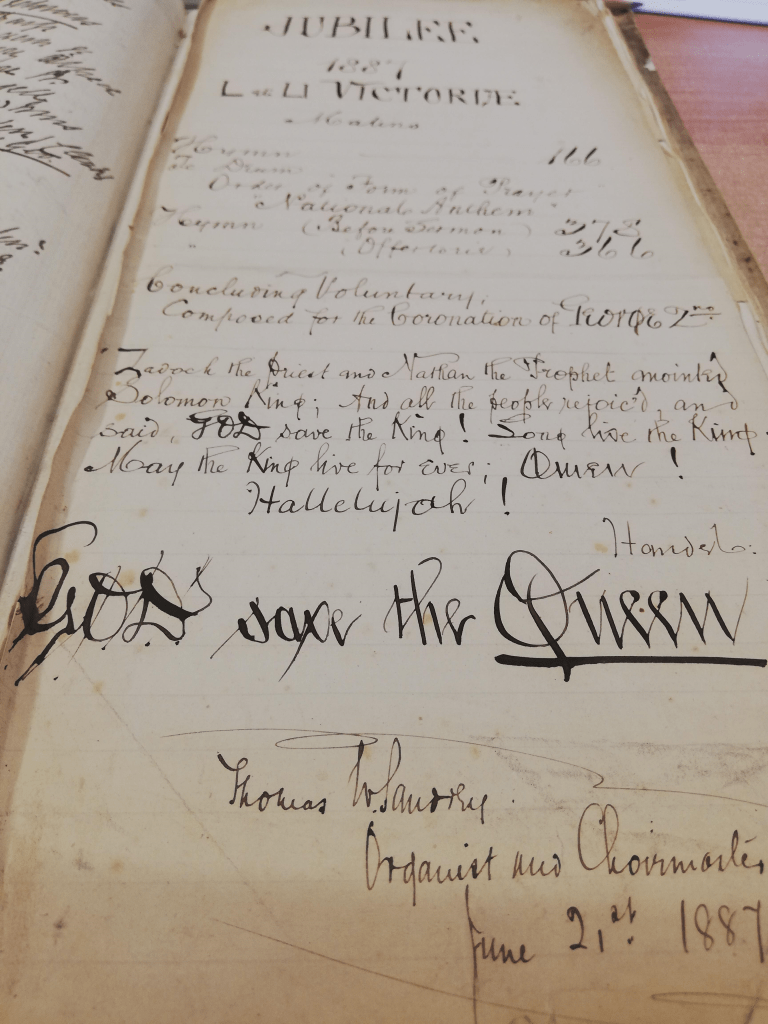 JUBILEE
1887
VICTORIÆ
Matins
Hymn 166
Te Deum
Order of Form of Prayer
"National Anthem"
Hymn (Before Sermon) 378
" (Offertorie) 366
Concluding Voluntary,
Composed for the Coronation of George 2nd
"Zadock the Priest and Nathan the Prophet anointed
Solomon King; And all the people rejoic'd, and
said, GOD save the King! Long live the King
May the King live for ever; Amen!
Hallelujah!
Handel.
GOD save the Queen
Thomas W.
Organist and Choirmaster
June 21st 1887